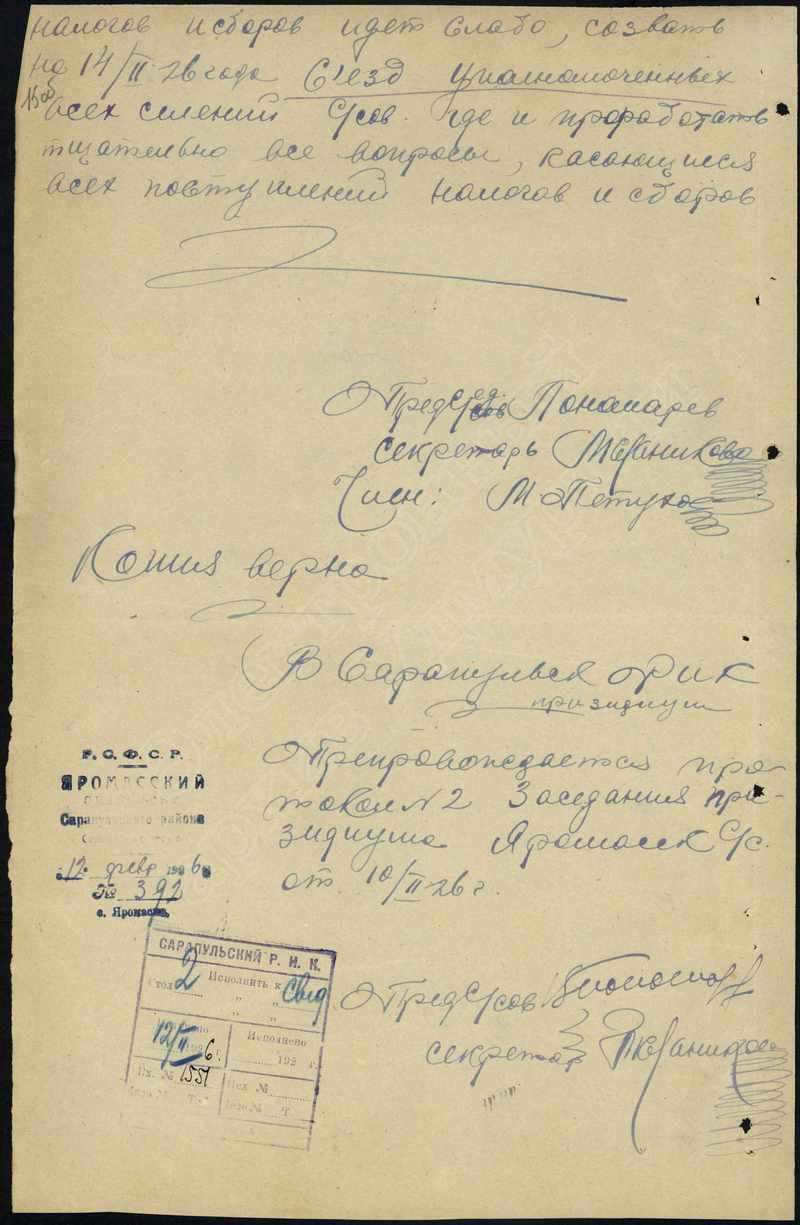 налогов и сборов идет слабо, созвать
на 14/II-26 года С'езд уполномоченных
всех селений С/сов. где и проработать
тщательно все вопросы, касающиеся
всех поступлений налогов и сборов
Пред С/сов Понамарев
секретарь
Член: М Петухо
Копия верна
В Сарапульск РИК
призидиум
Препровождается про-
токол № 2 Заседания пре-
зидиума Яромасск С/с.
от 10/II-26 г.
Р. С. Ф. С. Р.
ЯРОМАССКИЙ
Сарапульского района
12 февр 1926
№ 392
с. Яромаска,
САРАПУЛЬСКИЙ Р. И. К.
Стол 2 Исполнить к
" "
" "
12/II 1926 г.
Исполнено
192 г.
Вх. № 1551
Исх. №
Дело № Т
Пред С/сов
секретар